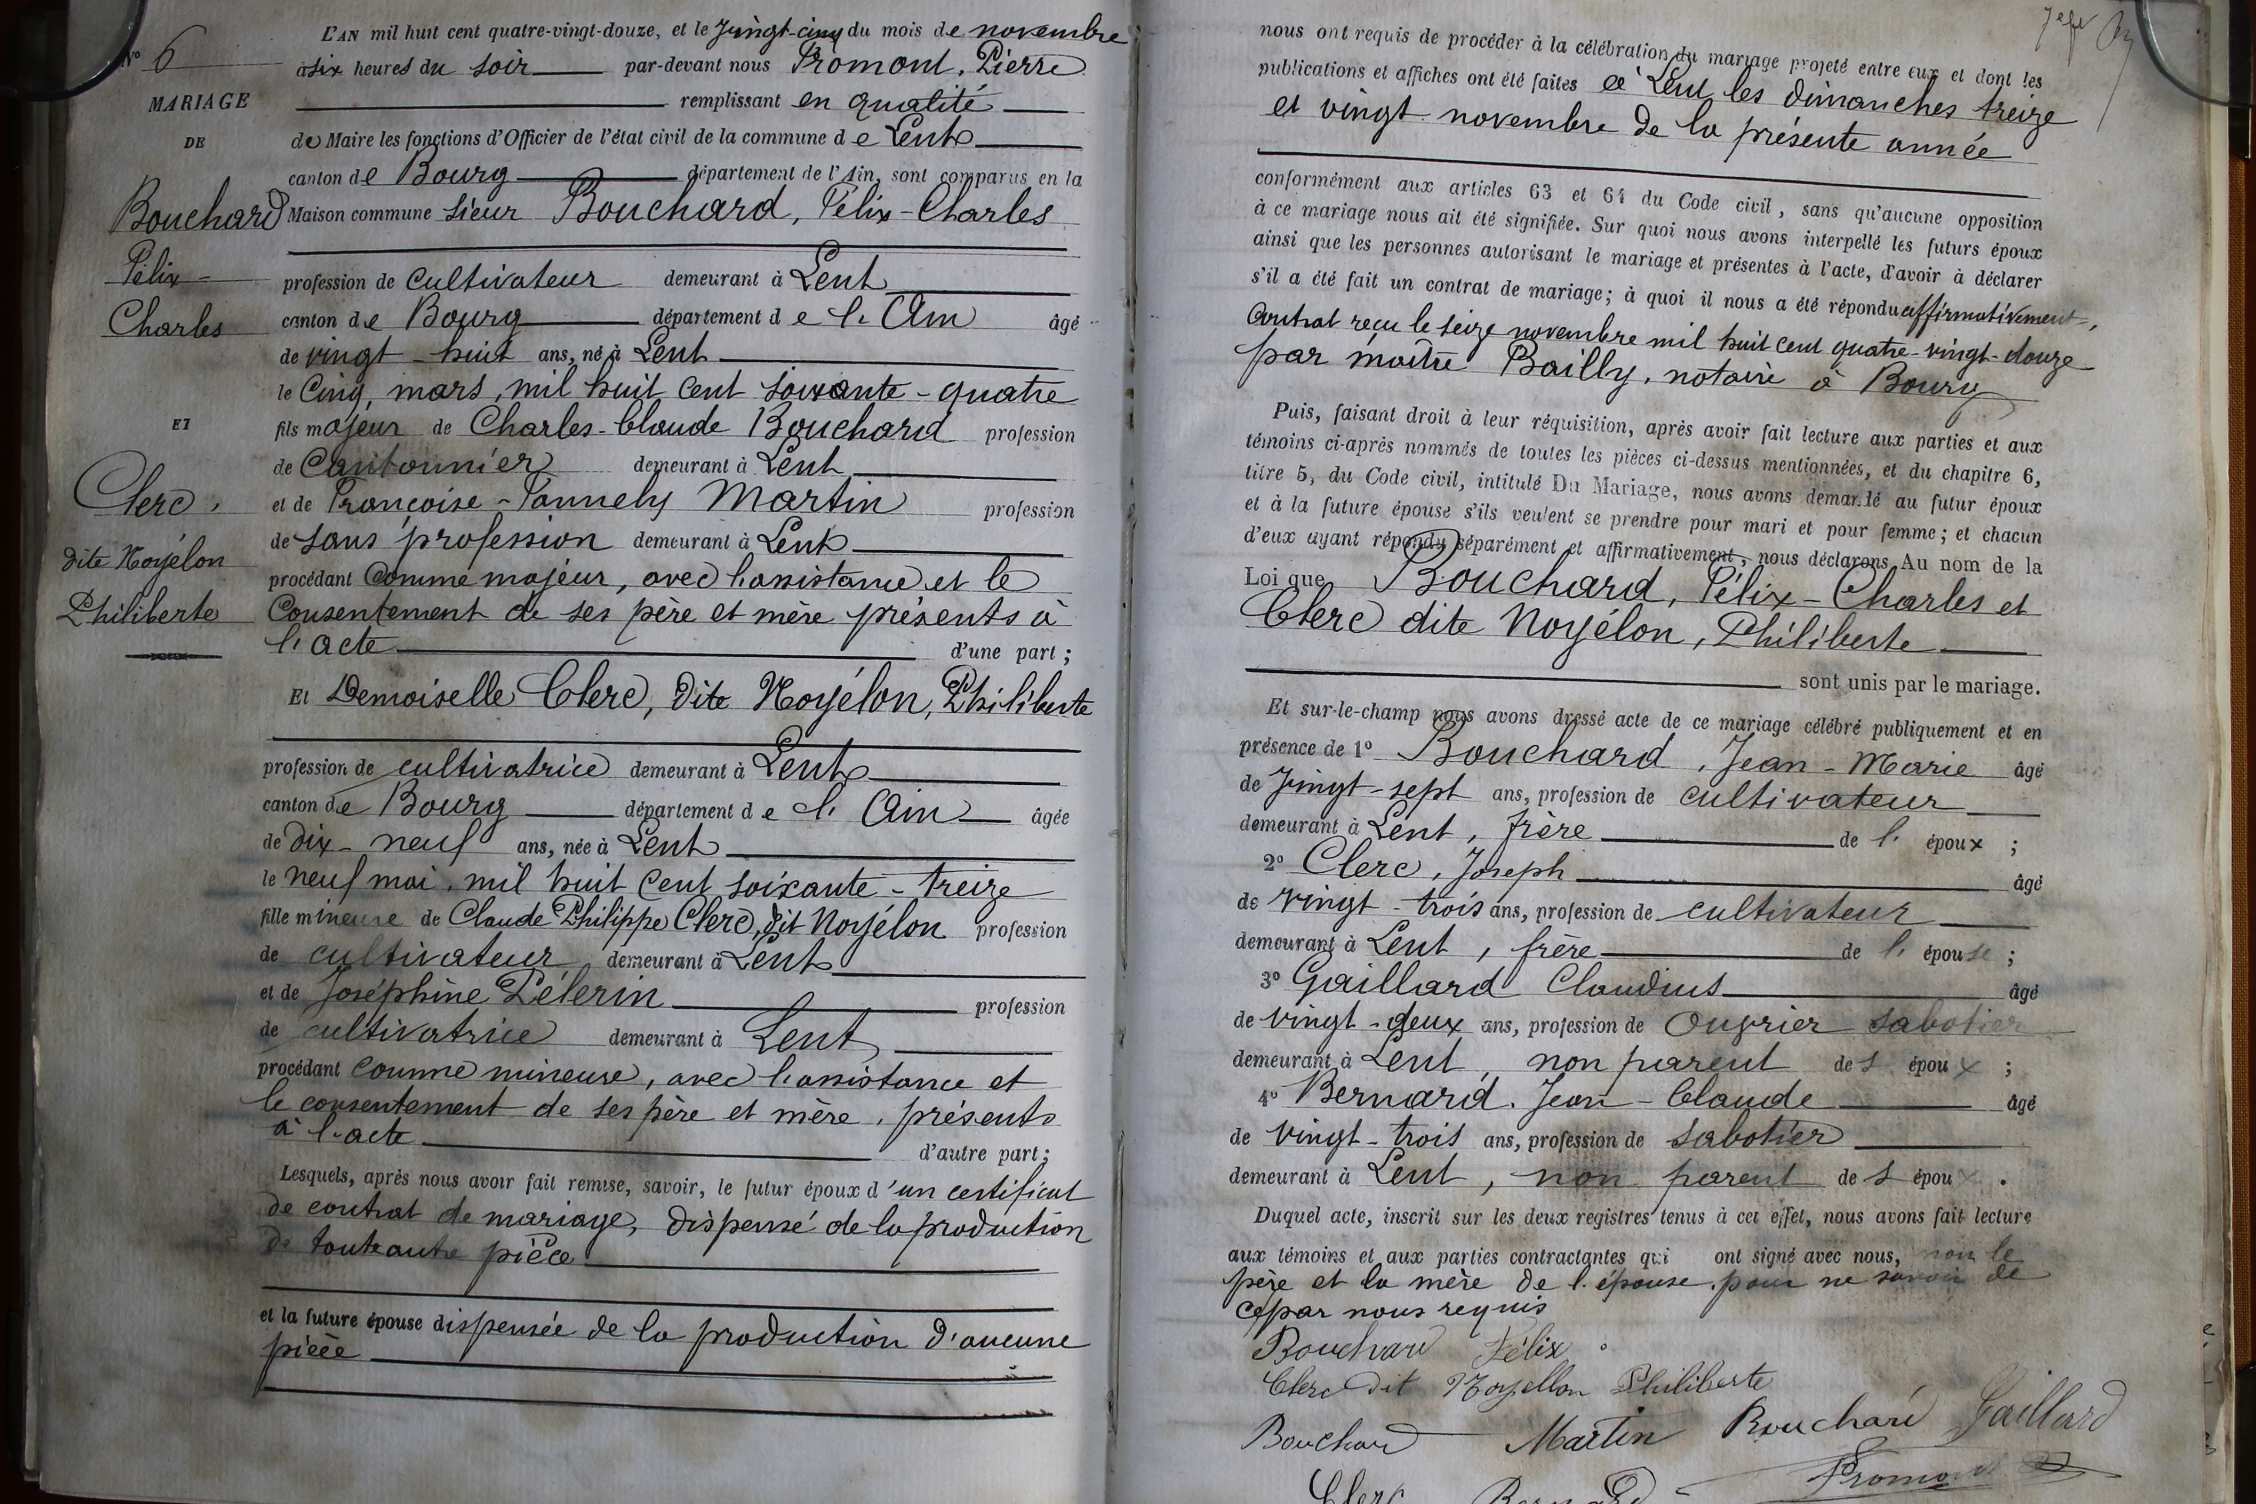 L'AN mil huit cent quatre-vingt-douze, et le vingt-cinq du mois de novembre
N° 6
à six heures du soir par-devant nous Fromont, Pierre
MARIAGE
remplissant en qualité
DE
de Maire les fonctions d'Officier de l'état civil de la commune de Lent
canton de Bourg département de l'Ain, sont comparus en la
Bouchard
Maison commune sieur Bouchard, Félix-Charles
Félix-
profession de cultivateur demeurant à Lent
Charles
canton de Bourg département de l'Ain âgé
de vingt-huit ans, né à Lent
le cinq mars, mil huit cent soixante-quatre
ET
fils majeur de Charles-Claude Bouchard profession
de Cantonnier demeurant à Lent
Clerc,
et de Françoise-Fannely Martin profession
de sans profession demeurant à Lent
dite Noyélon
procédant comme majeur, avec l'assistance et le
Philiberte
consentement de ses père et mère présents à
l'acte d'une part;
Et Demoiselle Clerc, dite Noyélon, Philiberte
profession de cultivatrice demeurant à Lent
canton de Bourg département de l'Ain âgée
de dix-neuf ans, née à Lent
le neuf mai, mil huit cent soixante-treize
fille mineure de Claude Philippe Clerc, dit Noyélon profession
de cultivateur demeurant à Lent
et de Joséphine Pélerin profession
de cultivatrice demeurant à Lent
procédant comme mineure, avec l'assistance et
le consentement de ses père et mère, présents
à l'acte d'autre part;
Lesquels, après nous avoir fait remise, savoir, le futur époux d'un certificat
de contrat de mariage, dispensé de la production
de toute autre pièce
et la future épouse dispensée de la production d'aucune
pièce
nous ont requis de procéder à la célébration du mariage projeté entre eux et dont les
publications et affiches ont été faites à Lent les dimanches treize
et vingt novembre de la présente année
conformément aux articles 63 et 64 du Code civil, sans qu'aucune opposition
à ce mariage nous ait été signifiée. Sur quoi nous avons interpellé les futurs époux
ainsi que les personnes autorisant le mariage et présentes à l'acte, d'avoir à déclarer
s'il a été fait un contrat de mariage; à quoi il nous a été répondu affirmativement,
Contrat reçu le seize novembre mil huit cent quatre-vingt-douze
par maître Bailly, notaire à Bourg
Puis, faisant droit à leur réquisition, après avoir fait lecture aux parties et aux
témoins ci-après nommés de toutes les pièces ci-dessus mentionnées, et du chapitre 6,
titre 5, du Code civil, intitulé Du Mariage, nous avons demandé au futur époux
et à la future épouse s'ils veulent se prendre pour mari et pour femme; et chacun
d'eux ayant répondu séparément et affirmativement, nous déclarons Au nom de la
Loi que Bouchard, Félix-Charles et
Clerc dite Noyélon, Philiberte
sont unis par le mariage.
Et sur-le-champ nous avons dressé acte de ce mariage célébré publiquement et en
présence de 1° Bouchard, Jean-Marie âgé
de vingt-sept ans, profession de cultivateur
demeurant à Lent, frère de l'époux;
2° Clerc, Joseph âgé
de vingt-trois ans, profession de cultivateur
demeurant à Lent, frère de l'épouse;
3° Gaillard Claudius âgé
de vingt-deux ans, profession de ouvrier sabotier
demeurant à Lent, non parent des époux;
4° Bernard, Jean-Claude âgé
de vingt-trois ans, profession de sabotier
demeurant à Lent, non parent des époux.
Duquel acte, inscrit sur les deux registres tenus à cet effet, nous avons fait lecture
aux témoins et aux parties contractantes qui ont signé avec nous, non le
père et la mère de l'épouse, pour ne savoir de
ce par nous requis
Bouchard Félix
Clerc dit Noyellon Philiberte
Bouchard Martin Bouchard Gaillard
Clerc Bernard Fromont